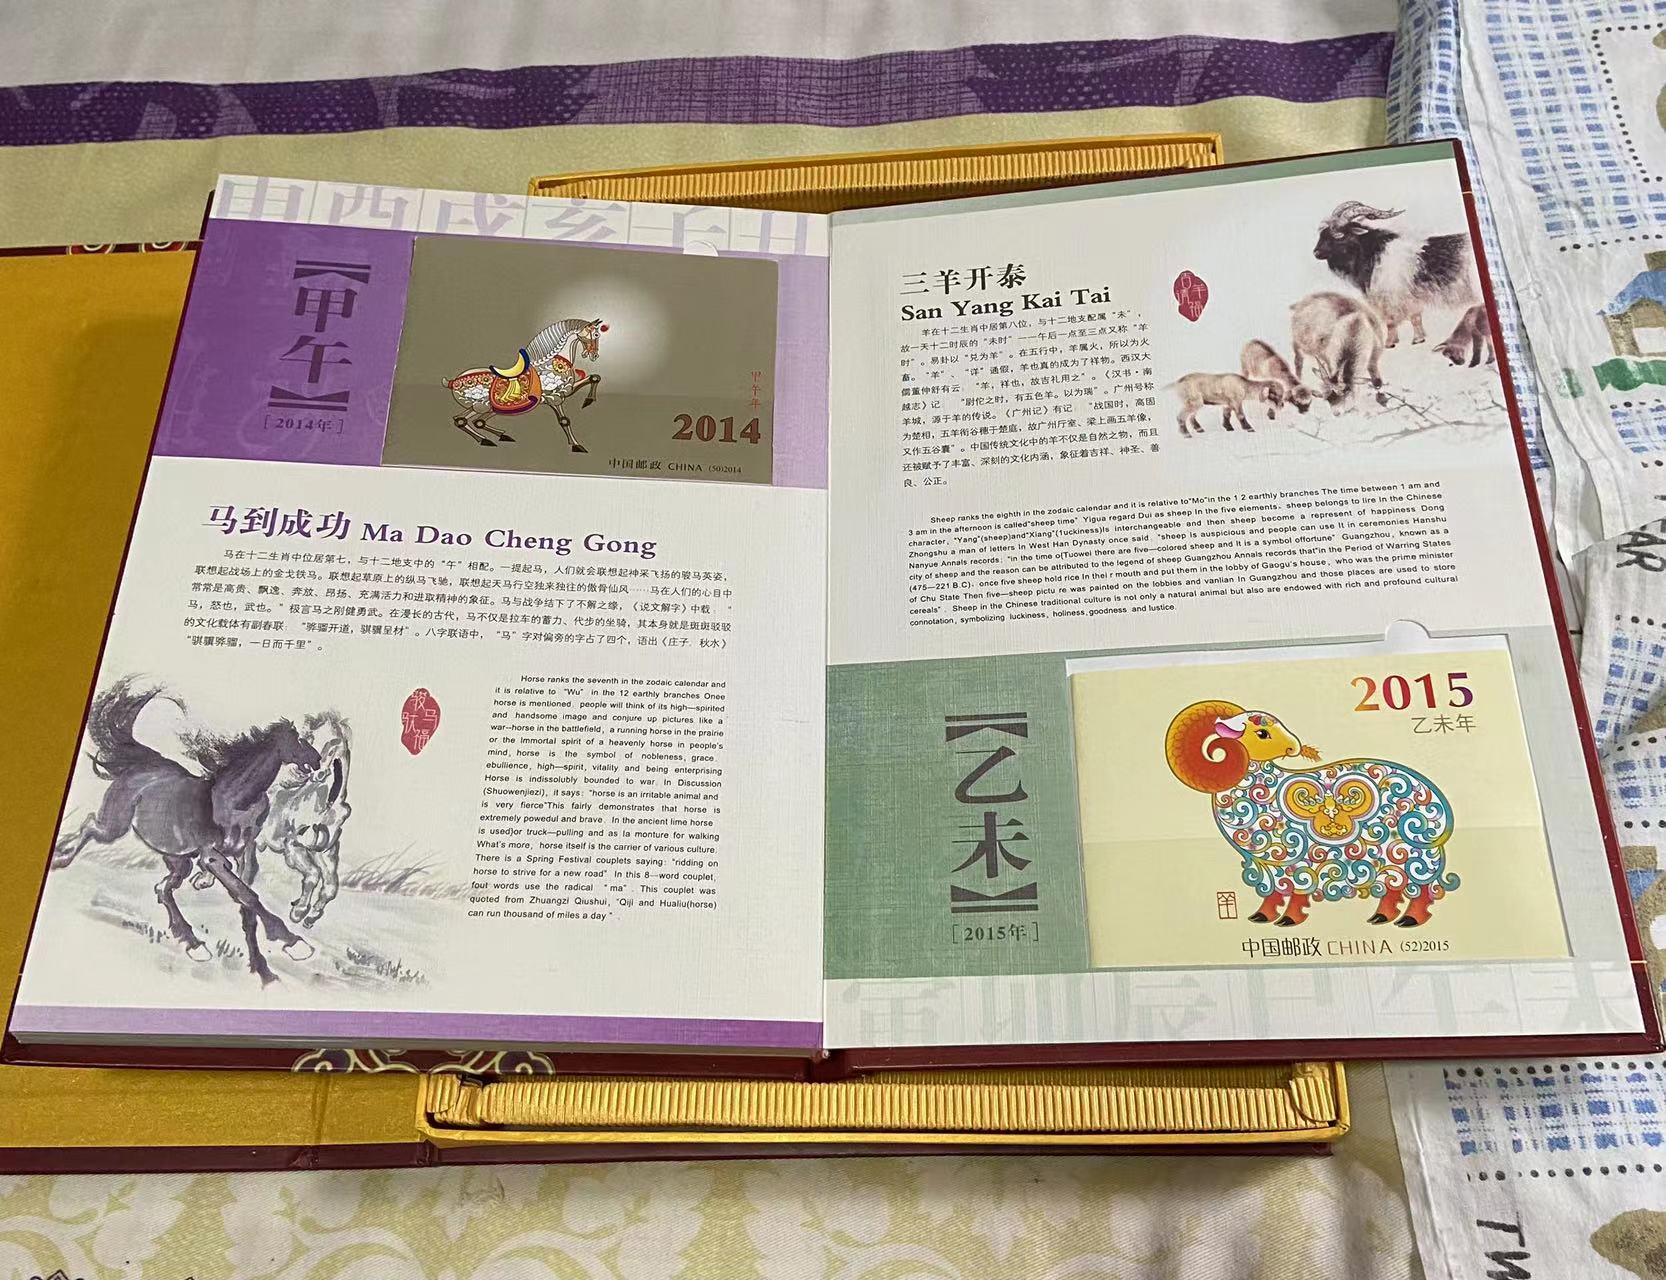 申酉戌亥子丑
【甲午】
[2014年]
甲午年
2014
中国邮政 CHINA (50)2014
马到成功 Ma Dao Cheng Gong
马在十二生肖中位居第七，与十二地支中的“午”相配。一提起马，人们就会联想起神采飞扬的骏马英姿，
联想起战场上的金戈铁马。联想起草原上的纵马飞驰，联想起天马行空独来独往的傲骨仙风……马在人们的心目中
常常是高贵、飘逸、奔放、昂扬、充满活力和进取精神的象征。马与战争结下了不解之缘，《说文解字》中载：“
马，怒也，武也。”极言马之刚健勇武。在漫长的古代，马不仅是拉车的蓄力、代步的坐骑，其本身就是斑斑驳驳
的文化载体有副春联：“骅骝开道，骐骥呈材”。八字联语中，“马”字对偏旁的字占了四个，语出《庄子．秋水》
“骐骥骅骝，一日而千里”。
Horse ranks the seventh in the zodaic calendar and
it is relative to “Wu” in the 12 earthly branches Onee
horse is mentioned, people will think of its high—spirited
and handsome image and conjure up pictures like a
war--horse in the battlefield, a running horse in the prairie
or the Immortal spirit of a heavenly horse in people's
mind, horse is the symbol of nobleness, grace,
ebullience, high—spirit, vitality and being enterprising
Horse is indissolubly bounded to war. In Discussion
(Shuowenjiezi), it says: “horse is an irritable animal and
is very fierce”This fairly demonstrates that horse is
extremely powedul and brave. In the ancient lime horse
is used)or truck—pulling and as la monture for walking
What's more, horse itself is the carrier of various culture.
There is a Spring Festival couplets saying: “ridding on
horse to strive for a new road” In this 8—word couplet,
fout words use the radical “ma”. This couplet was
quoted from Zhuangzi Qiushui, “Qiji and Hualiu(horse)
can run thousand of miles a day”.
三羊开泰
San Yang Kai Tai
羊在十二生肖中居第八位，与十二地支配属“未”，
故一天十二时辰的“未时”一一午后一点至三点又称“羊
时”。易卦以“兑为羊”。在五行中，羊属火，所以为火
畜。“羊”、“详”通假，羊也真的成为了祥物。西汉大
儒董仲舒有云：“羊，祥也，故吉礼用之”。《汉书·南
越志》记：“尉佗之时，有五色羊。以为瑞”。广州号称
羊城，源于羊的传说。《广州记》有记：“战国时，高固
为楚相，五羊衔谷穗于楚庭，故广州厅室、梁上画五羊像，
又作五谷囊”。中国传统文化中的羊不仅是自然之物，而且
还被赋予了丰富、深刻的文化内涵，象征着吉祥、神圣、善
良、公正。
Sheep ranks the eighth in the zodaic calendar and it is relative to“Mo”in the 1 2 earthly branches The time between 1 am and
3 am in the afternoon is called“sheep time” Yigua regard Dui as sheep In the five elements, sheep belongs to lire In the Chinese
character, “Yang”(sheep)and“Xiang”(1uckiness)Is interchangeable and then sheep become a represent of happiness Dong
Zhongshu a man of letters in West Han Dynasty once said, “sheep is auspicious and people can use It in ceremonies Hanshu
Nanyue Annals records; “in the time o(Tuowei there are five—colored sheep and It is a symbol offortune” Guangzhou, known as a
city of sheep and the reason can be attributed to the legend of sheep Guangzhou Annals records that“in the Period of Warring States
(475—221 B.C), once five sheep hold rice In thei r mouth and put them in the lobby of Gaogu's house, who was the prime minister
of Chu State Then five—sheep pictu re was painted on the lobbies and vanlian In Guangzhou and those places are used to store
cereals”. Sheep in the Chinese traditional culture is not only a natural animal but also are endowed with rich and profound cultural
connotation, symbolizing luckiness, holiness,goodness and Iustice.
【乙未】
[2015年]
2015
乙未年
羊
中国邮政 CHINA (52)2015
寅卯辰巳午未